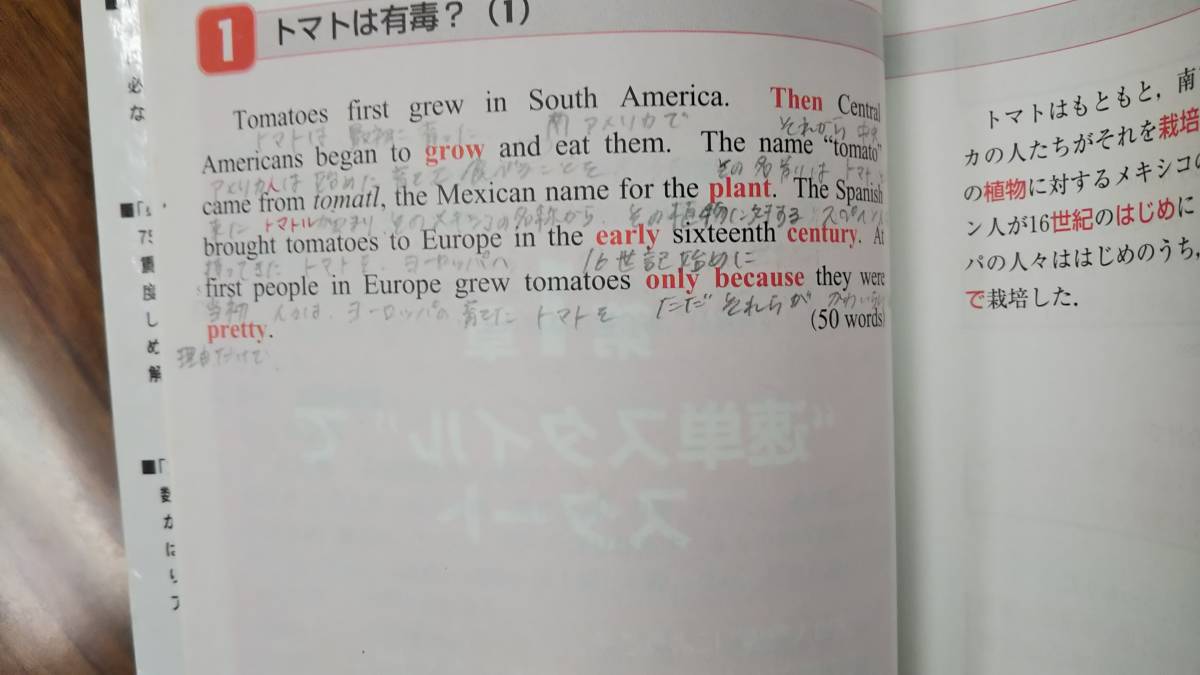 必
な
1 トマトは有毒？(1)
Tomatoes first grew in South America. Then Central
トマトは 最初に 育った 南アメリカで それから 中央
Americans began to grow and eat them. The name “tomato”
アメリカ人は 始めた 育てて 食べることを その名前は トマト
came from tomatl, the Mexican name for the plant. The Spanish
来た トマトル そのメキシコの名称から、その植物に対する スペイン
brought tomatoes to Europe in the early sixteenth century. At
持ってきた トマトを、ヨーロッパへ 16世記始めに
first people in Europe grew tomatoes only because they were
当初 人々は、ヨーロッパの 育てた トマトを ただ それらが かわいい
pretty. (50 words)
理由だけで
■「
75
頂
度
し
め
解
■「
委
か
は
り
第1章
“速単スタイル”で
スタート
トマトはもともと，南
カの人たちがそれを栽培
の植物に対するメキシコの
ン人が16世紀のはじめに
パの人々ははじめのうち，
で栽培した．